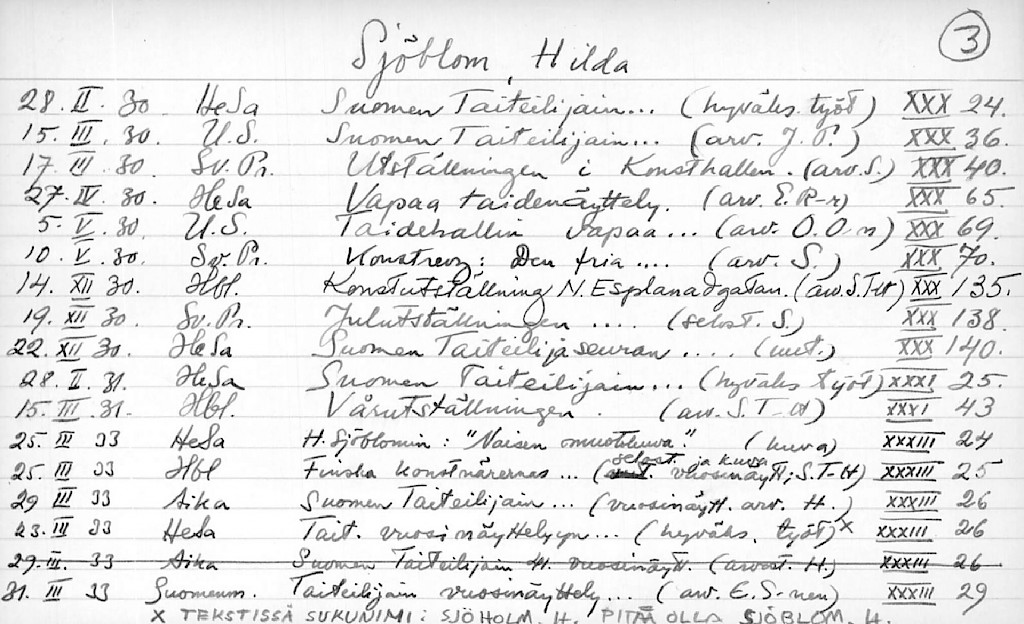 3
Sjöblom, Hilda
28. II. 30. HeSa Suomen Taiteilijain... (hyväks. työt) XXX 24.
15. III. 30. U.S. Suomen Taiteilijain... (arv. J. P.) XXX 36.
17. III. 30. Sv. Pr. Utställningen i Konsthallen. (arv. S.) XXX 40.
27. IV. 30. HeSa Vapaa taidenäyttely. (arv. E. R-r) XXX 65.
5. V. 30. U.S. Taidehallin vapaa... (arv. O. O-n) XXX 69.
10. V. 30. Sv. Pr. Konstrevy: Den fria .... (arv. S.) XXX 70.
14. XII 30. Hbl. Konstutställning N. Esplanadgatan. (arv. S. T-tt) XXX 135.
19. XII 30. Sv. Pr. Julutställningen .... (selost. S.) XXX 138.
22. XII 30. HeSa Suomen Taiteilijaseuran .... (uut.) XXX 140.
28. II. 31. HeSa Suomen Taiteilijain... (hyväks. työt) XXXI 25.
15. III. 31. Hbl. Vårutställningen. (arv. S. T-tt) XXXI 43
25. III 33 HeSa H. Sjöblomin: "Naisen muotokuva". (kuva) XXXIII 24
25. III 33 Hbl Finska Konstnärernas ... (selost. ja kuva vuosinäytt; S. T-tt) XXXIII 25
29 III 33 Aika Suomen Taiteilijain... (vuosinäytt. arv. H.) XXXIII 26
23. III 33 HeSa Tait. vuosinäyttelyyn... (hyväks. työt) x XXXIII 26
29. III. 33 Aika Suomen Taiteilijain 41. vuosinäytt. (arvost. H.) XXXIII 26
31. III 33 Suomenm. Taiteilijain vuosinäyttely... (arv. E. S-nen) XXXIII 29
x TEKSTISSÄ SUKUNIMI: SJÖHOLM, H. PITÄÄ OLLA SJÖBLOM, H.